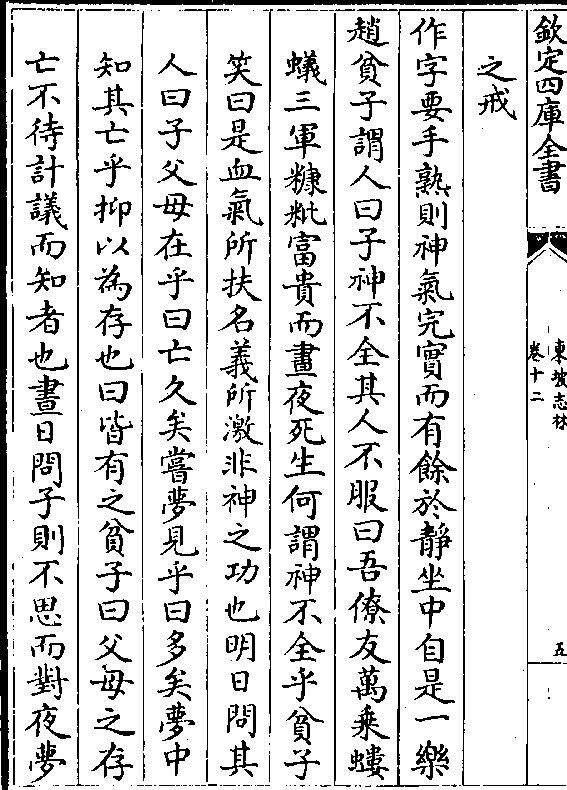 欽定四庫全書
東坡志林
卷十二
五
之戒
作字要手熟則神氣完實而有餘於靜坐中自是一樂
趙貧子謂人曰子神不全其人不服曰吾僚友萬乘螻
蟻三軍糠粃富貴而晝夜死生何謂神不全乎貧子
笑曰是血氣所扶名義所激非神之功也明日問其
人曰子父母在乎曰亡久矣嘗夢見乎曰多矣夢中
知其亡乎抑以為存也曰皆有之貧子曰父母之存
亡不待計議而知者也晝日問子則不思而對夜夢